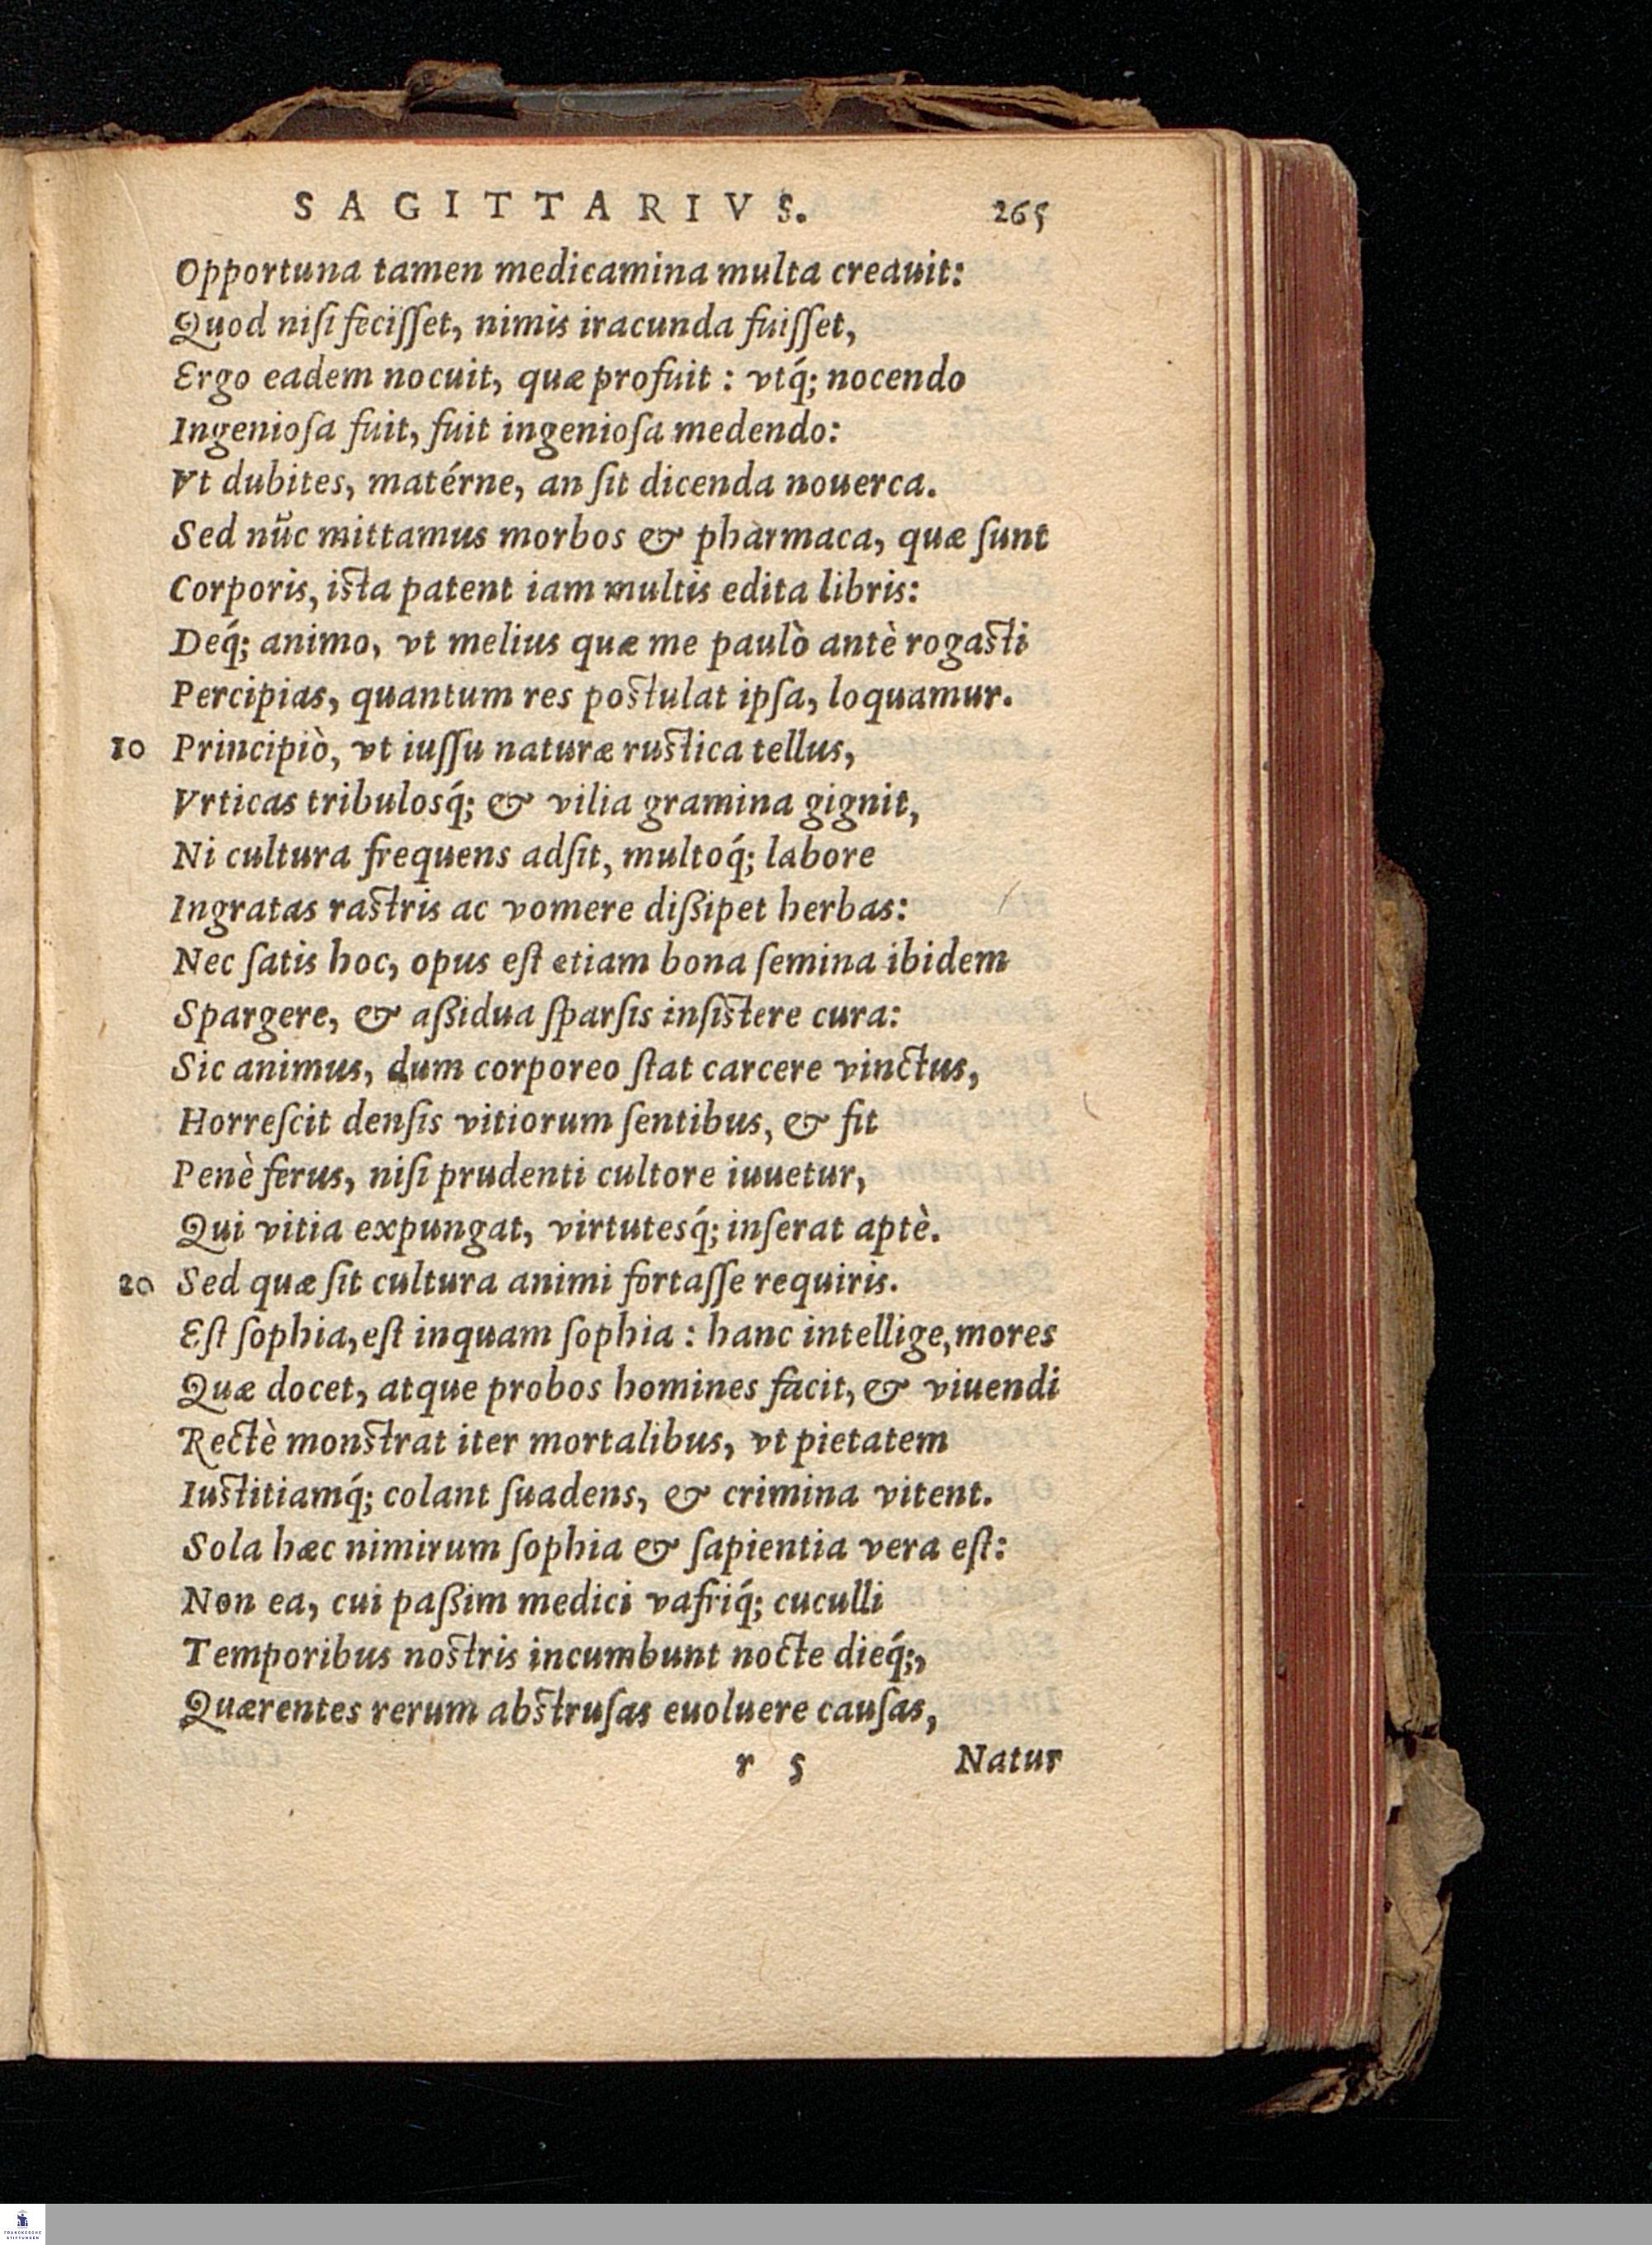 SAGITTARIVS. 265
Opportuna tamen medicamina multa creauit:
Quod niſi feciſſet, nimis iracunda fuiſſet,
Ergo eadem nocuit, quæ profuit : vtq́; nocendo
Ingenioſa fuit, fuit ingenioſa medendo:
Vt dubites, matérne, an ſit dicenda nouerca.
Sed nũc mittamus morbos & pharmaca, quæ ſunt
Corporis, iſta patent iam multis edita libris:
Deq́; animo, vt melius quæ me paulò antè rogaſti
Percipias, quantum res poſtulat ipſa, loquamur.
10 Principiò, vt iuſſu naturæ ruſtica tellus,
Vrticas tribulosq́; & vilia gramina gignit,
Ni cultura frequens adſit, multoq́; labore
Ingratas raſtris ac vomere dißipet herbas:
Nec ſatis hoc, opus eſt etiam bona ſemina ibidem
Spargere, & aßidua ſparſis inſiſtere cura:
Sic animus, dum corporeo ſtat carcere vinctus,
Horreſcit denſis vitiorum ſentibus, & fit
Penè ferus, niſi prudenti cultore iuuetur,
Qui vitia expungat, virtutesq́; inſerat aptè.
20 Sed quæ ſit cultura animi fortaſſe requiris.
Eſt ſophia, eſt inquam ſophia : hanc intellige, mores
Quæ docet, atque probos homines facit, & viuendi
Rectè monſtrat iter mortalibus, vt pietatem
Iuſtitiamq́; colant ſuadens, & crimina vitent.
Sola hæc nimirum ſophia & ſapientia vera eſt:
Non ea, cui paßim medici vafriq́; cuculli
Temporibus noſtris incumbunt nocte dieq́;,
Quærentes rerum abſtruſas euoluere cauſas,
r 5 Natur
FRANCKESCHE
STIFTUNGEN